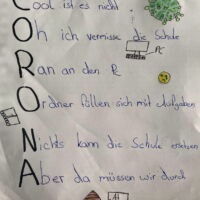 Cool ist es nicht
Oh ich vermisse die Schule
PC
Ran an den PC
Ordner füllen sich mit Aufgaben
Nichts kann die Schule ersetzen
Aber da müssen wir durch